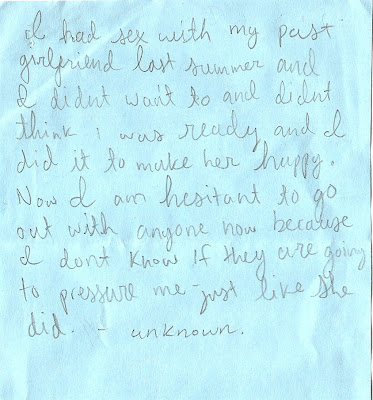 I had sex with my past
girlfriend last summer and
I didnt want to and didnt
think i was ready and I
did it to make her happy.
Now I am hesitant to go
out with anyone now because
I dont know if they are going
to pressure me - just like she
did. - unknown.